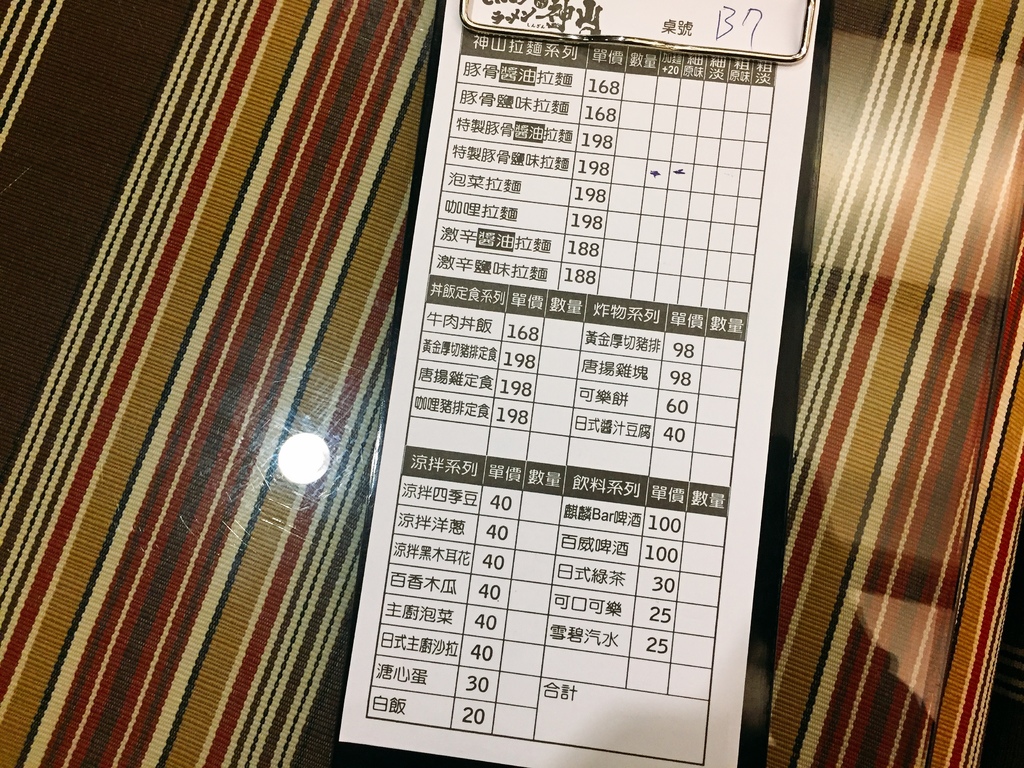 ラーメン 神山
しんざん
桌號 B7
神山拉麵系列 單價 數量 加麵+20 細原味 細淡 粗原味 粗淡
豚骨醬油拉麵 168
豚骨鹽味拉麵 168
特製豚骨醬油拉麵 198
特製豚骨鹽味拉麵 198
泡菜拉麵 198
咖哩拉麵 198
激辛醬油拉麵 188
激辛鹽味拉麵 188
丼飯定食系列 單價 數量 炸物系列 單價 數量
牛肉丼飯 168 黃金厚切豬排 98
黃金厚切豬排定食 198 唐揚雞塊 98
唐揚雞定食 198 可樂餅 60
咖哩豬排定食 198 日式醬汁豆腐 40
涼拌系列 單價 數量 飲料系列 單價 數量
涼拌四季豆 40 麒麟Bar啤酒 100
涼拌洋蔥 40 百威啤酒 100
涼拌黑木耳花 40 日式綠茶 30
百香木瓜 40 可口可樂 25
主廚泡菜 40 雪碧汽水 25
日式主廚沙拉 40
溏心蛋 30 合計
白飯 20